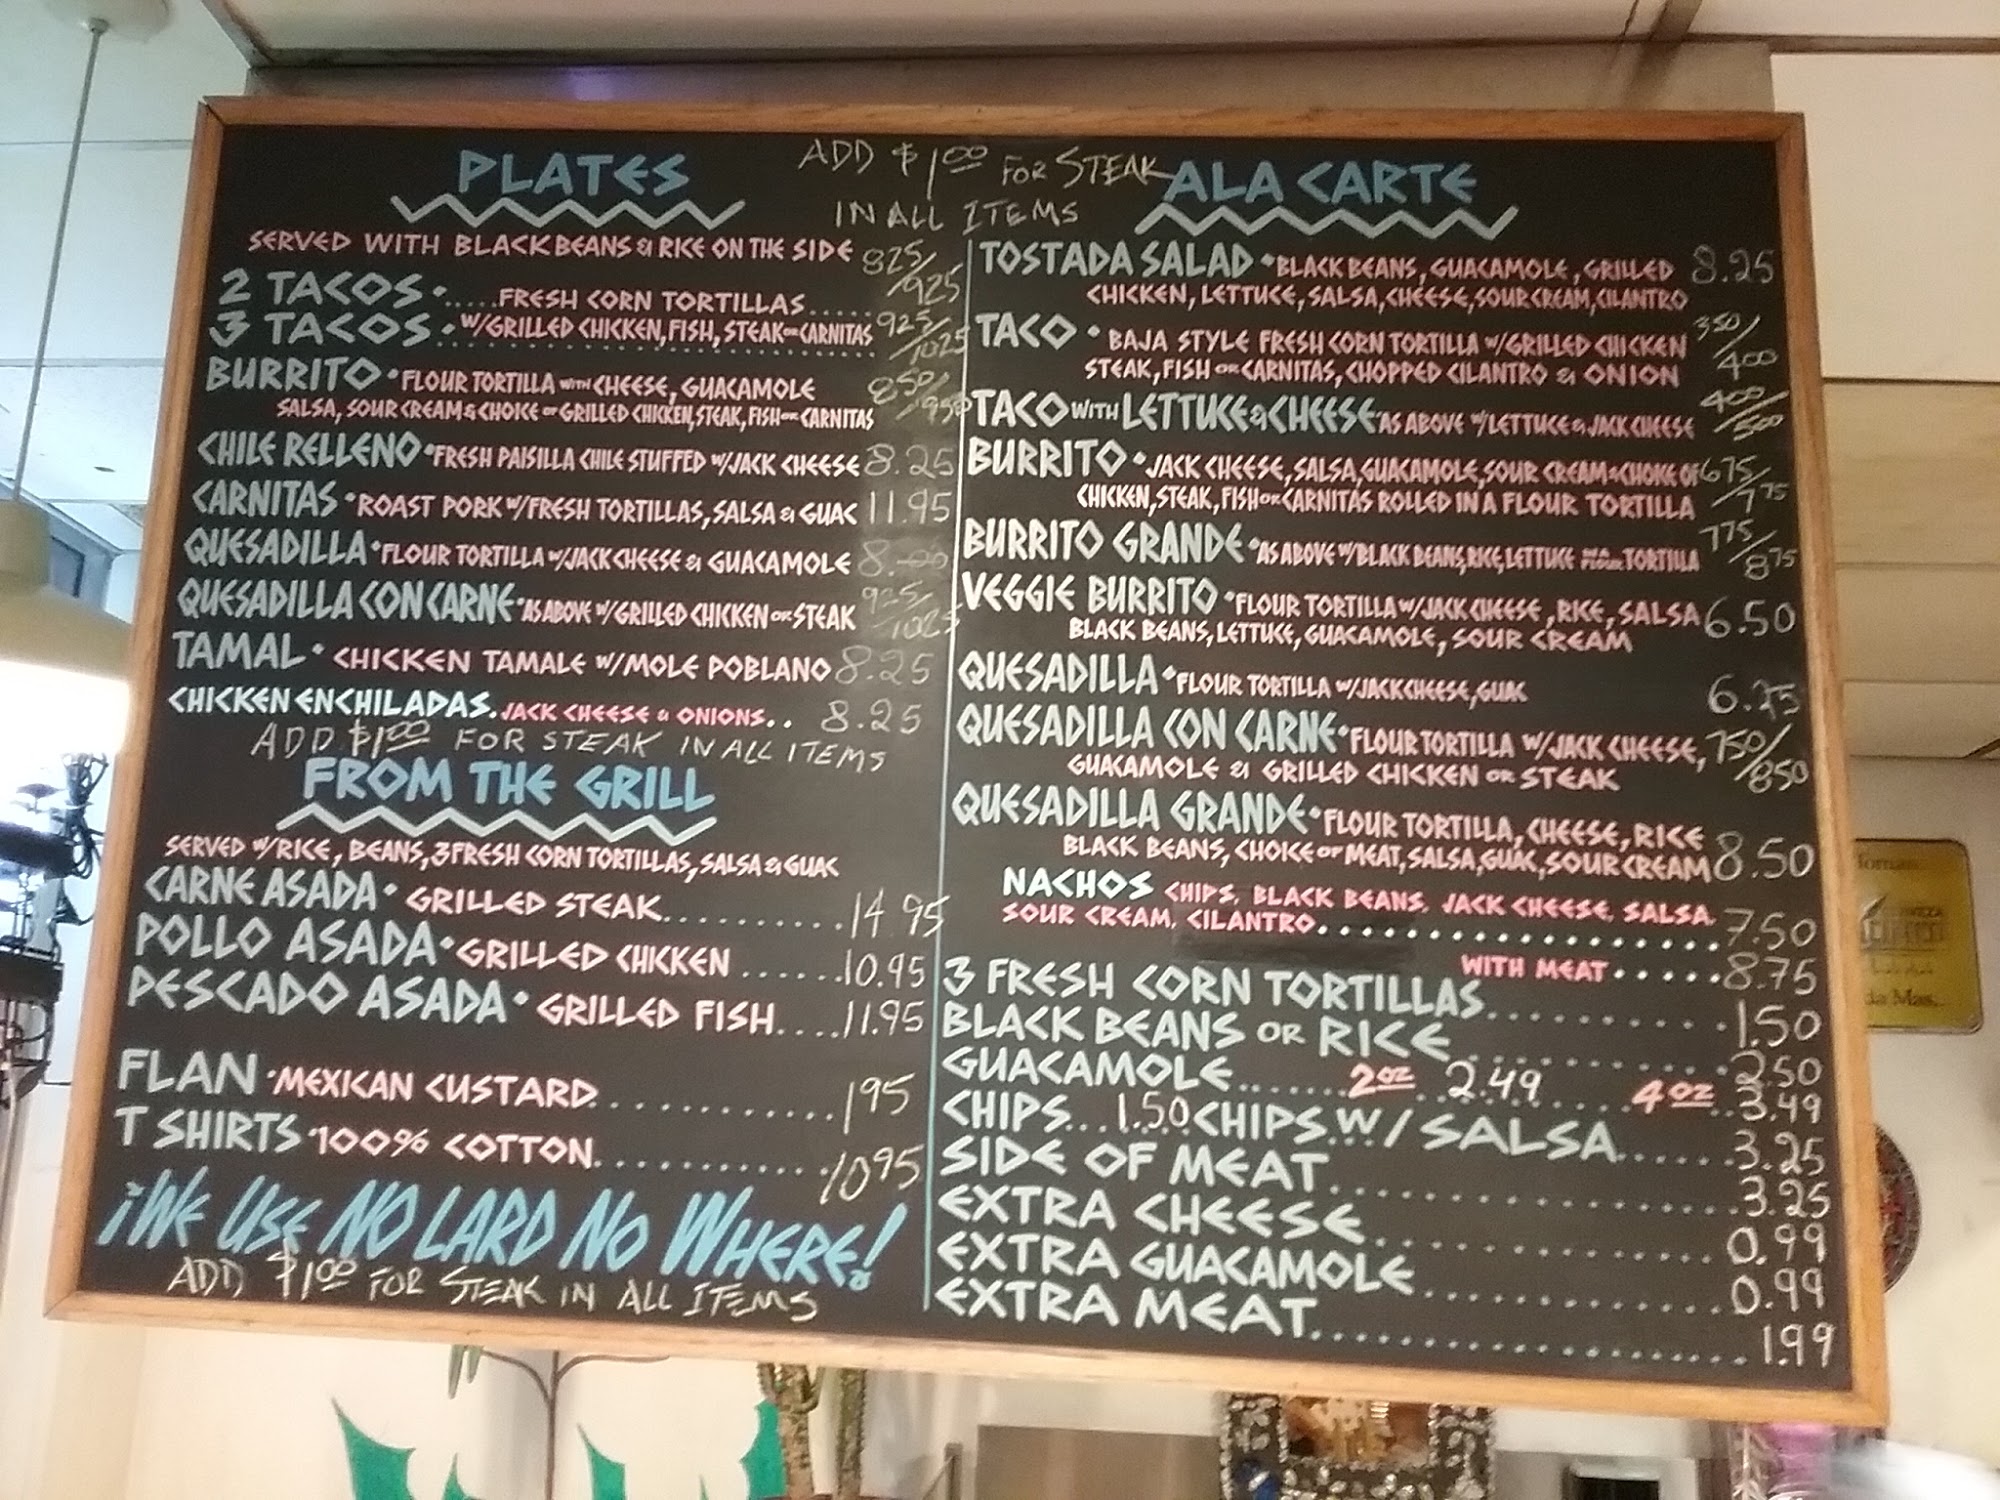 ADD $1.00 FOR STEAK
IN ALL ITEMS
PLATES
SERVED WITH BLACK BEANS & RICE ON THE SIDE
2 TACOS • .....FRESH CORN TORTILLAS..... 825/925
3 TACOS • W/GRILLED CHICKEN, FISH, STEAK OR CARNITAS 925/1025
BURRITO • FLOUR TORTILLA WITH CHEESE, GUACAMOLE 850/950
SALSA, SOUR CREAM & CHOICE OF GRILLED CHICKEN, STEAK, FISH OR CARNITAS
CHILE RELLENO • FRESH PAISILLA CHILE STUFFED W/JACK CHEESE 8.25
CARNITAS • ROAST PORK W/FRESH TORTILLAS, SALSA & GUAC 11.95
QUESADILLA • FLOUR TORTILLA W/JACK CHEESE & GUACAMOLE 8.00
QUESADILLA CON CARNE • AS ABOVE W/GRILLED CHICKEN OR STEAK 925/1025
TAMAL • CHICKEN TAMALE W/MOLE POBLANO 8.25
CHICKEN ENCHILADAS. JACK CHEESE & ONIONS.. 8.25
ADD $1.00 FOR STEAK IN ALL ITEMS
FROM THE GRILL
SERVED W/RICE, BEANS, 3 FRESH CORN TORTILLAS, SALSA & GUAC
CARNE ASADA • GRILLED STEAK........... 14.95
POLLO ASADA • GRILLED CHICKEN ......10.95
PESCADO ASADA • GRILLED FISH....11.95
FLAN • MEXICAN CUSTARD............ 195
T SHIRTS • 100% COTTON............ 1095
¡WE USE NO LARD NO WHERE!
ADD $1.00 FOR STEAK IN ALL ITEMS
ALA CARTE
TOSTADA SALAD • BLACK BEANS, GUACAMOLE, GRILLED 8.25
CHICKEN, LETTUCE, SALSA, CHEESE, SOUR CREAM, CILANTRO
TACO • BAJA STYLE FRESH CORN TORTILLA W/GRILLED CHICKEN 350/400
STEAK, FISH OR CARNITAS, CHOPPED CILANTRO & ONION
TACO WITH LETTUCE & CHEESE • AS ABOVE W/LETTUCE & JACK CHEESE 400/500
BURRITO • JACK CHEESE, SALSA, GUACAMOLE, SOUR CREAM & CHOICE OF 675/775
CHICKEN, STEAK, FISH OR CARNITAS ROLLED IN A FLOUR TORTILLA
BURRITO GRANDE • AS ABOVE W/BLACK BEANS, RICE, LETTUCE FLOUR TORTILLA 775/875
VEGGIE BURRITO • FLOUR TORTILLA W/JACK CHEESE, RICE, SALSA 6.50
BLACK BEANS, LETTUCE, GUACAMOLE, SOUR CREAM
QUESADILLA • FLOUR TORTILLA W/JACK CHEESE, GUAC 6.25
QUESADILLA CON CARNE • FLOUR TORTILLA W/JACK CHEESE, 750/850
GUACAMOLE & GRILLED CHICKEN OR STEAK
QUESADILLA GRANDE • FLOUR TORTILLA, CHEESE, RICE
BLACK BEANS, CHOICE OF MEAT, SALSA, GUAC, SOUR CREAM 8.50
NACHOS CHIPS, BLACK BEANS, JACK CHEESE, SALSA,
SOUR CREAM, CILANTRO.................... 7.50
WITH MEAT ..... 8.75
3 FRESH CORN TORTILLAS............ 1.50
BLACK BEANS OR RICE ............ 2.50
GUACAMOLE...... 2 OZ 2.49 .... 4 OZ .. 3.49
CHIPS... 1.50 CHIPS W/ SALSA...... 3.25
SIDE OF MEAT................. 3.25
EXTRA CHEESE................ 0.99
EXTRA GUACAMOLE.............. 0.99
EXTRA MEAT.................... 1.99